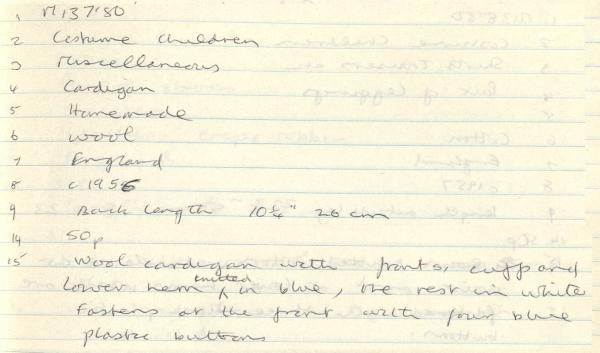 1 M137'80
2 Costume children
3 Miscellaneous
4 Cardigan
5 Homemade
6 wool
7 England
8 c 1956
9 Back length 10¼" 26 cm
14 50p
15 Wool cardigan with fronts, cuffs and
lower hem knitted in blue, the rest in white
Fastens at the front with four blue
plastic buttons